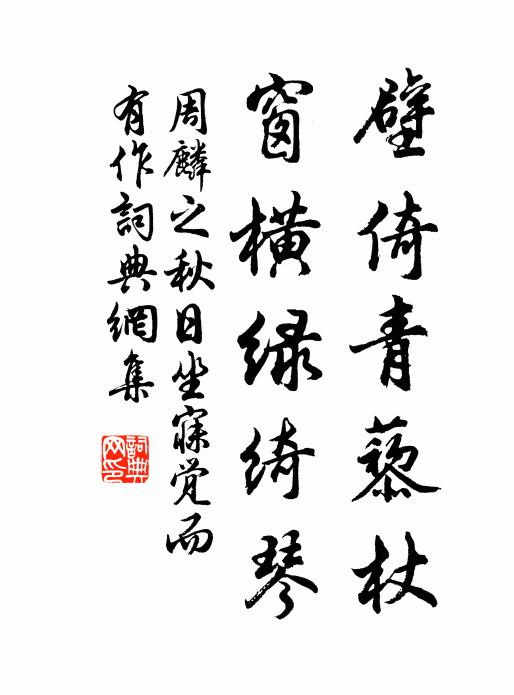 壁倚青藜杖
窗橫緑綺琴
周麟之秋日坐寐觉而
有作詞典網集
詞典网印